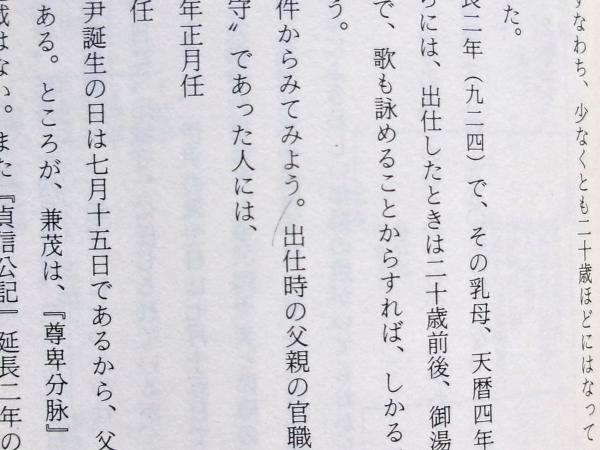 すなわち、少なくとも二十歳ほどにはなって
た。
長二年（九二四）で、その乳母、天暦四年
らには、出仕したときは二十歳前後、御湯
で、歌も詠めることからすれば、しかる
う。
件からみてみよう。出仕時の父親の官職
守〟であった人には、
年正月任
任
尹誕生の日は七月十五日であるから、父
ある。ところが、兼茂は、『尊卑分脉』
載はない。また『貞信公記』延長二年の